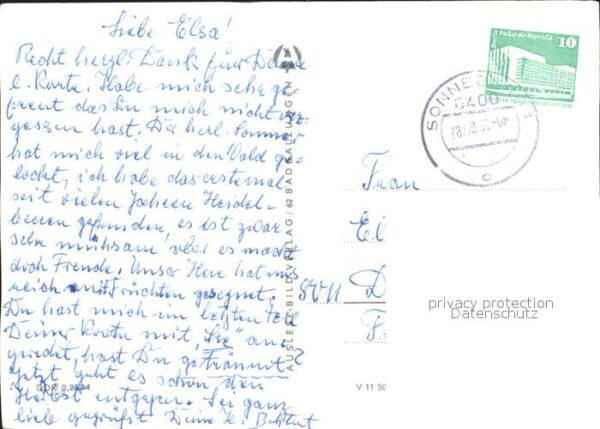 Liebe Elsa!
Recht herzl. Dank für Deine
l. Karte. Habe mich sehr ge-
freut das Du mich nicht ver-
gessen hast. Der herl. Sommer
hat mich viel in den Wald ge-
lockt, ich habe das erstemal
seit vielen Jahren Heidel-
beeren gefunden, es ist zwar
sehr mühsam, aber es macht
doch Freude. Unser Herr hat uns
reich mit Früchten gesegnet.
Du hast mich im letzten Teil
Deiner Karte mit "Sie" ange-
redet, hast Du geträumt?
Jetzt geht es schon dem
Herbst entgegen. Sei ganz
lieb gegrüßt Deine
DDR 0,25 M
AUSLESE-BILD-VERLAG / 62 BAD SALZUNGEN
V 11 50
10
Palast der Republik
Berlin
DDR
SONNEBERG
6400
Frau
Ei
D
F
privacy protection
Datenschutz